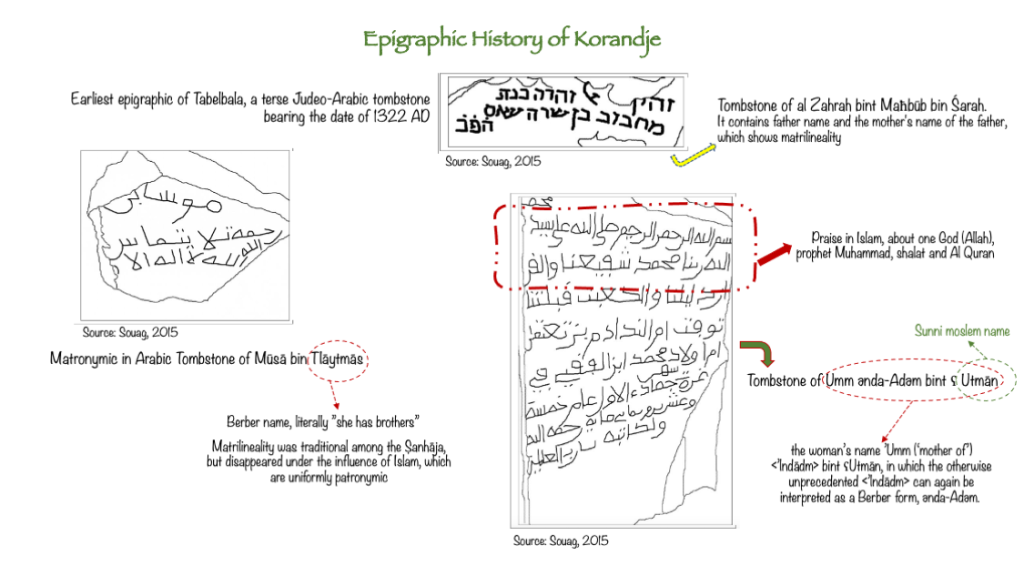 Epigraphic History of Korandje
Earliest epigraphic of Tabelbala, a terse Judeo-Arabic tombstone
bearing the date of 1322 AD
זהרה בנת
מחבוב בן שרה
Source: Souag, 2015
Tombstone of al Zahrah bint Maħbūb bin Śarah.
It contains father name and the mother's name of the father,
which shows matrilineality
موسا بن
تلا يتماس
الله لا اله الا
الله
Source: Souag, 2015
Matronymic in Arabic Tombstone of Mūsā bin Tlaytmās
Berber name, literally "she has brothers"
Matrilineality was traditional among the Ṣanhāja,
but disappeared under the influence of Islam, which
are uniformly patronymic
محمد
بسم الله الرحمن الرحيم صلى الله على سيد
الله ربنا محمد شفيعنا والقر
ان دليلنا والكعبت قبلتنا
توفت ام
ام اولاد محمد ابن الفقيه في
غرة شهر جمادا الاول عام خمسة
وعشرين الله
ولكاتبه
Source: Souag, 2015
Praise in Islam, about one God (Allah),
prophet Muhammad, shalat and Al Quran
Sunni moslem name
Tombstone of Umm ənda-Adəm bint ʕUtmān
the woman's name 'Umm ('mother of')
<'Indādm> bint ʕUtmān, in which the otherwise
unprecedented <'Indādm> can again be
interpreted as a Berber form, ənda-Adəm.